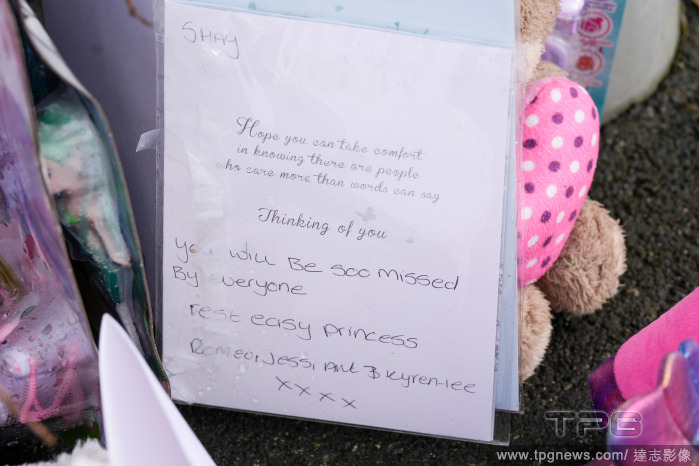 SHAY
Hope you can take comfort
in knowing there are people
who care more than words can say
Thinking of you
you will Be soo missed
By everyone
rest easy princess
Romeo, Jess, Ant & Kyren-lee
xxxx
TPG
www.tpgnews.com/達志影像